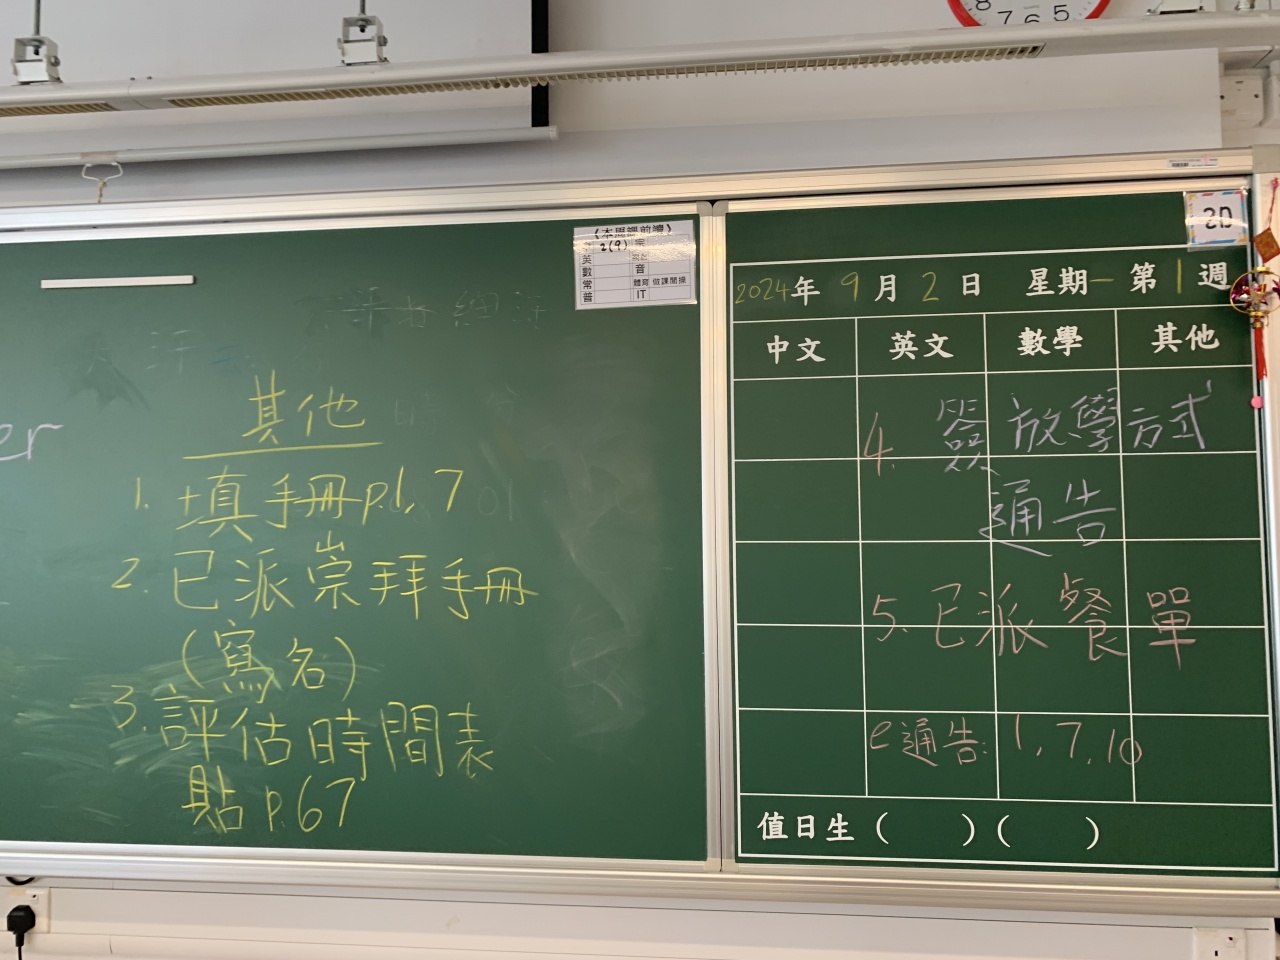 8 7 6 5
2D
《本周課前禮》
2(9)
英
數 音
常 體育 做課間操
普 IT
er
其他
1. 填手冊p.1, 7
2. 已派崇拜手冊
(寫名)
3. 評估時間表
貼p.67
2024年 9月 2日 星期一 第1週
中文 英文 數學 其他
4. 簽放學方式
通告
5. 已派餐單
e通告: 1, 7, 10
值日生 ( ) ( )